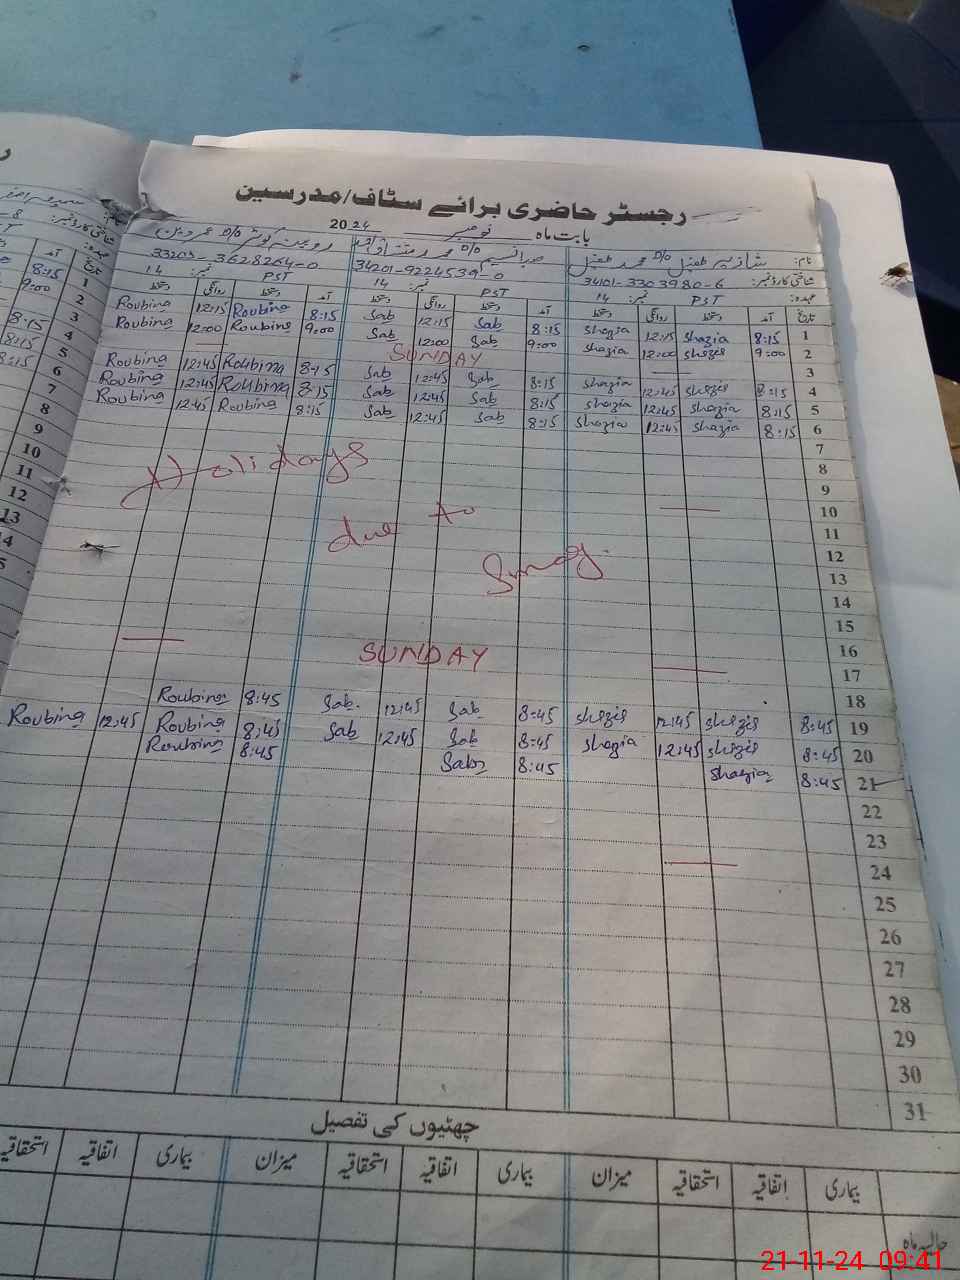 رجسٹر حاضری برائے سٹاف/مدرسین
بابت ماہ نومبر 2024
نام: شازیہ طفیل D/o محمد طفیل
D/o
D/o
شناختی کارڈ نمبر: 34101-3303980-6
34201-9224539-0
33203-3628264-0
عہدہ: PST نمبر: 14
PST نمبر: 14
PST نمبر: 14
تاریخ آمد دستخط روانگی دستخط آمد دستخط روانگی دستخط آمد دستخط روانگی دستخط
1 8:15 Shazia 12:15 Shazia 8:15 Sab 12:15 Sab 8:15 Roubina 12:15 Roubina
2 9:00 Shazia 12:00 Shazia 9:00 Sab 12:00 Sab 9:00 Roubina 12:00 Roubina
3 SUNDAY
4 8:15 Shazia 12:45 Shazia 8:15 Sab 12:45 Sab 8:15 Roubina 12:45 Roubina
5 8:15 Shazia 12:45 Shazia 8:15 Sab 12:45 Sab 8:15 Roubina 12:45 Roubina
6 8:15 Shazia 12:45 Shazia 8:15 Sab 12:45 Sab 8:15 Roubina 12:45 Roubina
7
8
9
10
11
12
13
14
15
16
Holidays
due to
Smog.
17 SUNDAY
18
19 8:45 Shazia 12:45 Shazia 8:45 Sab 12:45 Sab 8:45 Roubina
20 8:45 Shazia 12:45 Shazia 8:45 Sab 12:45 Sab 8:45 Roubina 12:45 Roubina
21 8:45 Shazia 8:45 Sab 8:45 Roubina
22
23
24
25
26
27
28
29
30
31
چھٹیوں کی تفصیل
بیماری اتفاقیہ استحقاقیہ میزان بیماری اتفاقیہ استحقاقیہ میزان بیماری اتفاقیہ استحقاقیہ
حالیہ ماہ
21-11-24 09:41